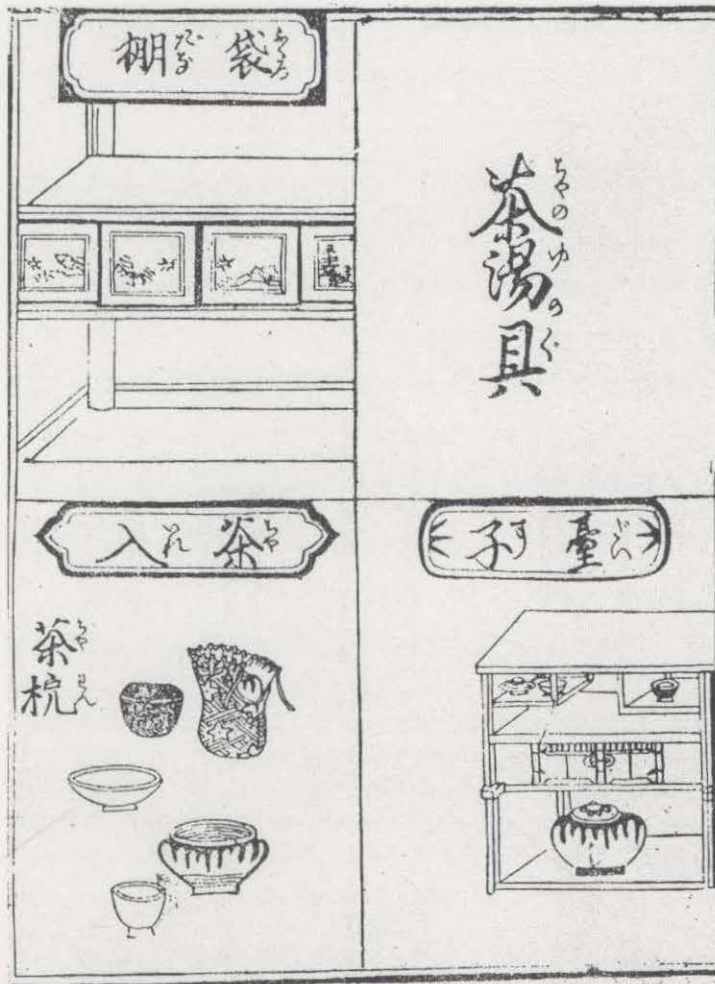 茶湯具
ちやのゆのぐ
袋棚
ふくろだな
臺子
だいす
茶入
ちやいれ
茶椀
ちやわん